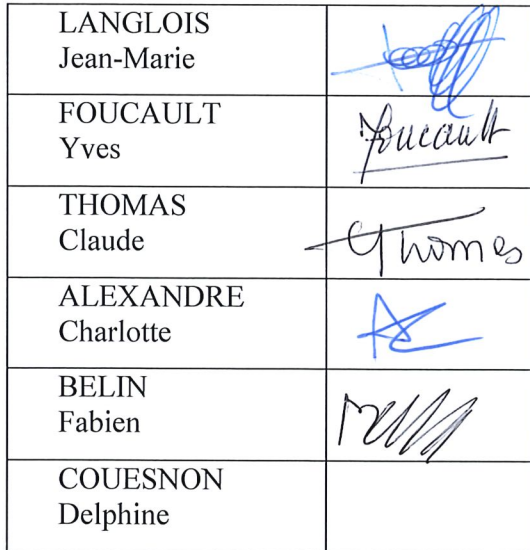 LANGLOIS
Jean-Marie
FOUCAULT
Yves
Foucault
THOMAS
Claude
Thomas
ALEXANDRE
Charlotte
AC
BELIN
Fabien
COUESNON
Delphine